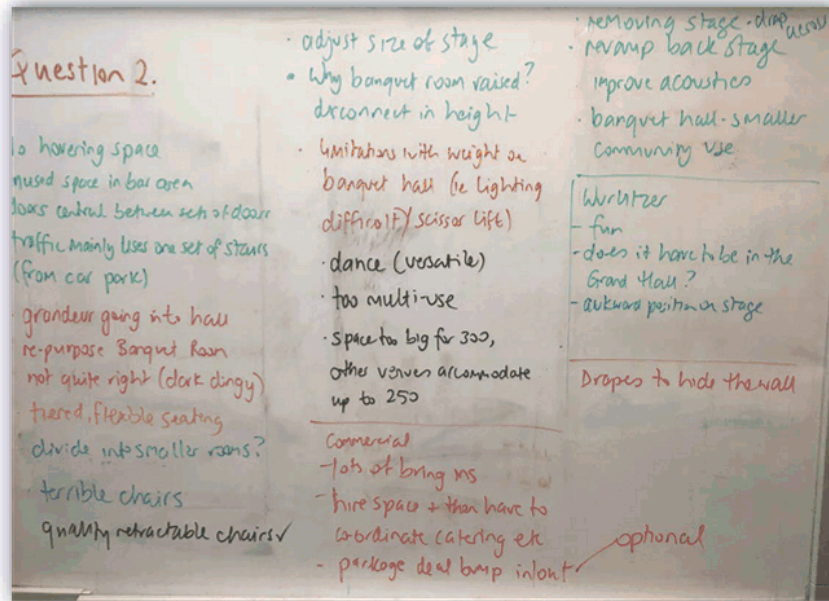 Question 2.
hovering space
space in bar area
doors central between sets of doors
traffic mainly uses one set of stairs
(from car park)
· grandeur going into hall
re-purpose Banquet Room
not quite right (dark dingy)
· tiered, flexible seating
divide into smaller rooms?
· terrible chairs
quality retractable chairs ✓
· adjust size of stage
• Why banquet room raised?
disconnect in height
· limitations with weight on
banquet hall (ie lighting
difficult / scissor lift)
· dance (versatile)
· too multi-use
· space too big for 300,
other venues accommodate
up to 250
Commercial
- lots of bring ins
- hire space + then have to
coordinate catering etc
- package deal bump in/out
optional
· removing stage - drap across
· revamp back stage
improve acoustics
· banquet hall - smaller
community use
Wurlitzer
- fun
- does it have to be in the
Grand Hall?
- awkward position on stage
Drapes to hide the wall